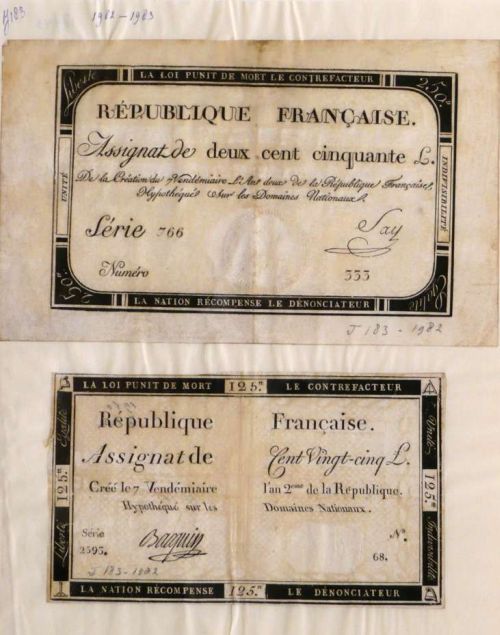 J183 1982-1983
LA LOI PUNIT DE MORT LE CONTREFACTEUR
Liberté
250.tt
RÉPUBLIQUE FRANÇAISE.
Assignat de deux cent cinquante L.
De la Création du 7 Vendémiaire L'An deux de la République Française,
Hypothéqué Sur les Domaines Nationaux.
UNITÉ
INDIVISIBILITÉ
Série 766
Say
Numéro 333
250.tt
Egalité
LA NATION RÉCOMPENSE LE DÉNONCIATEUR
J 183 - 1982
LA LOI PUNIT DE MORT 125.tt LE CONTREFACTEUR
République Française.
Egalité
Unité
Assignat de Cent Vingt-cinq L.
Créé le 7 Vendémiaire l'an 2eme de la République.
Hypothéqué sur les Domaines Nationaux.
125.tt
125.tt
Série N.o
2595. Bacquin 68.
Liberté
Indivisibilité
J 183-1982
LA NATION RÉCOMPENSE 125.tt LE DÉNONCIATEUR